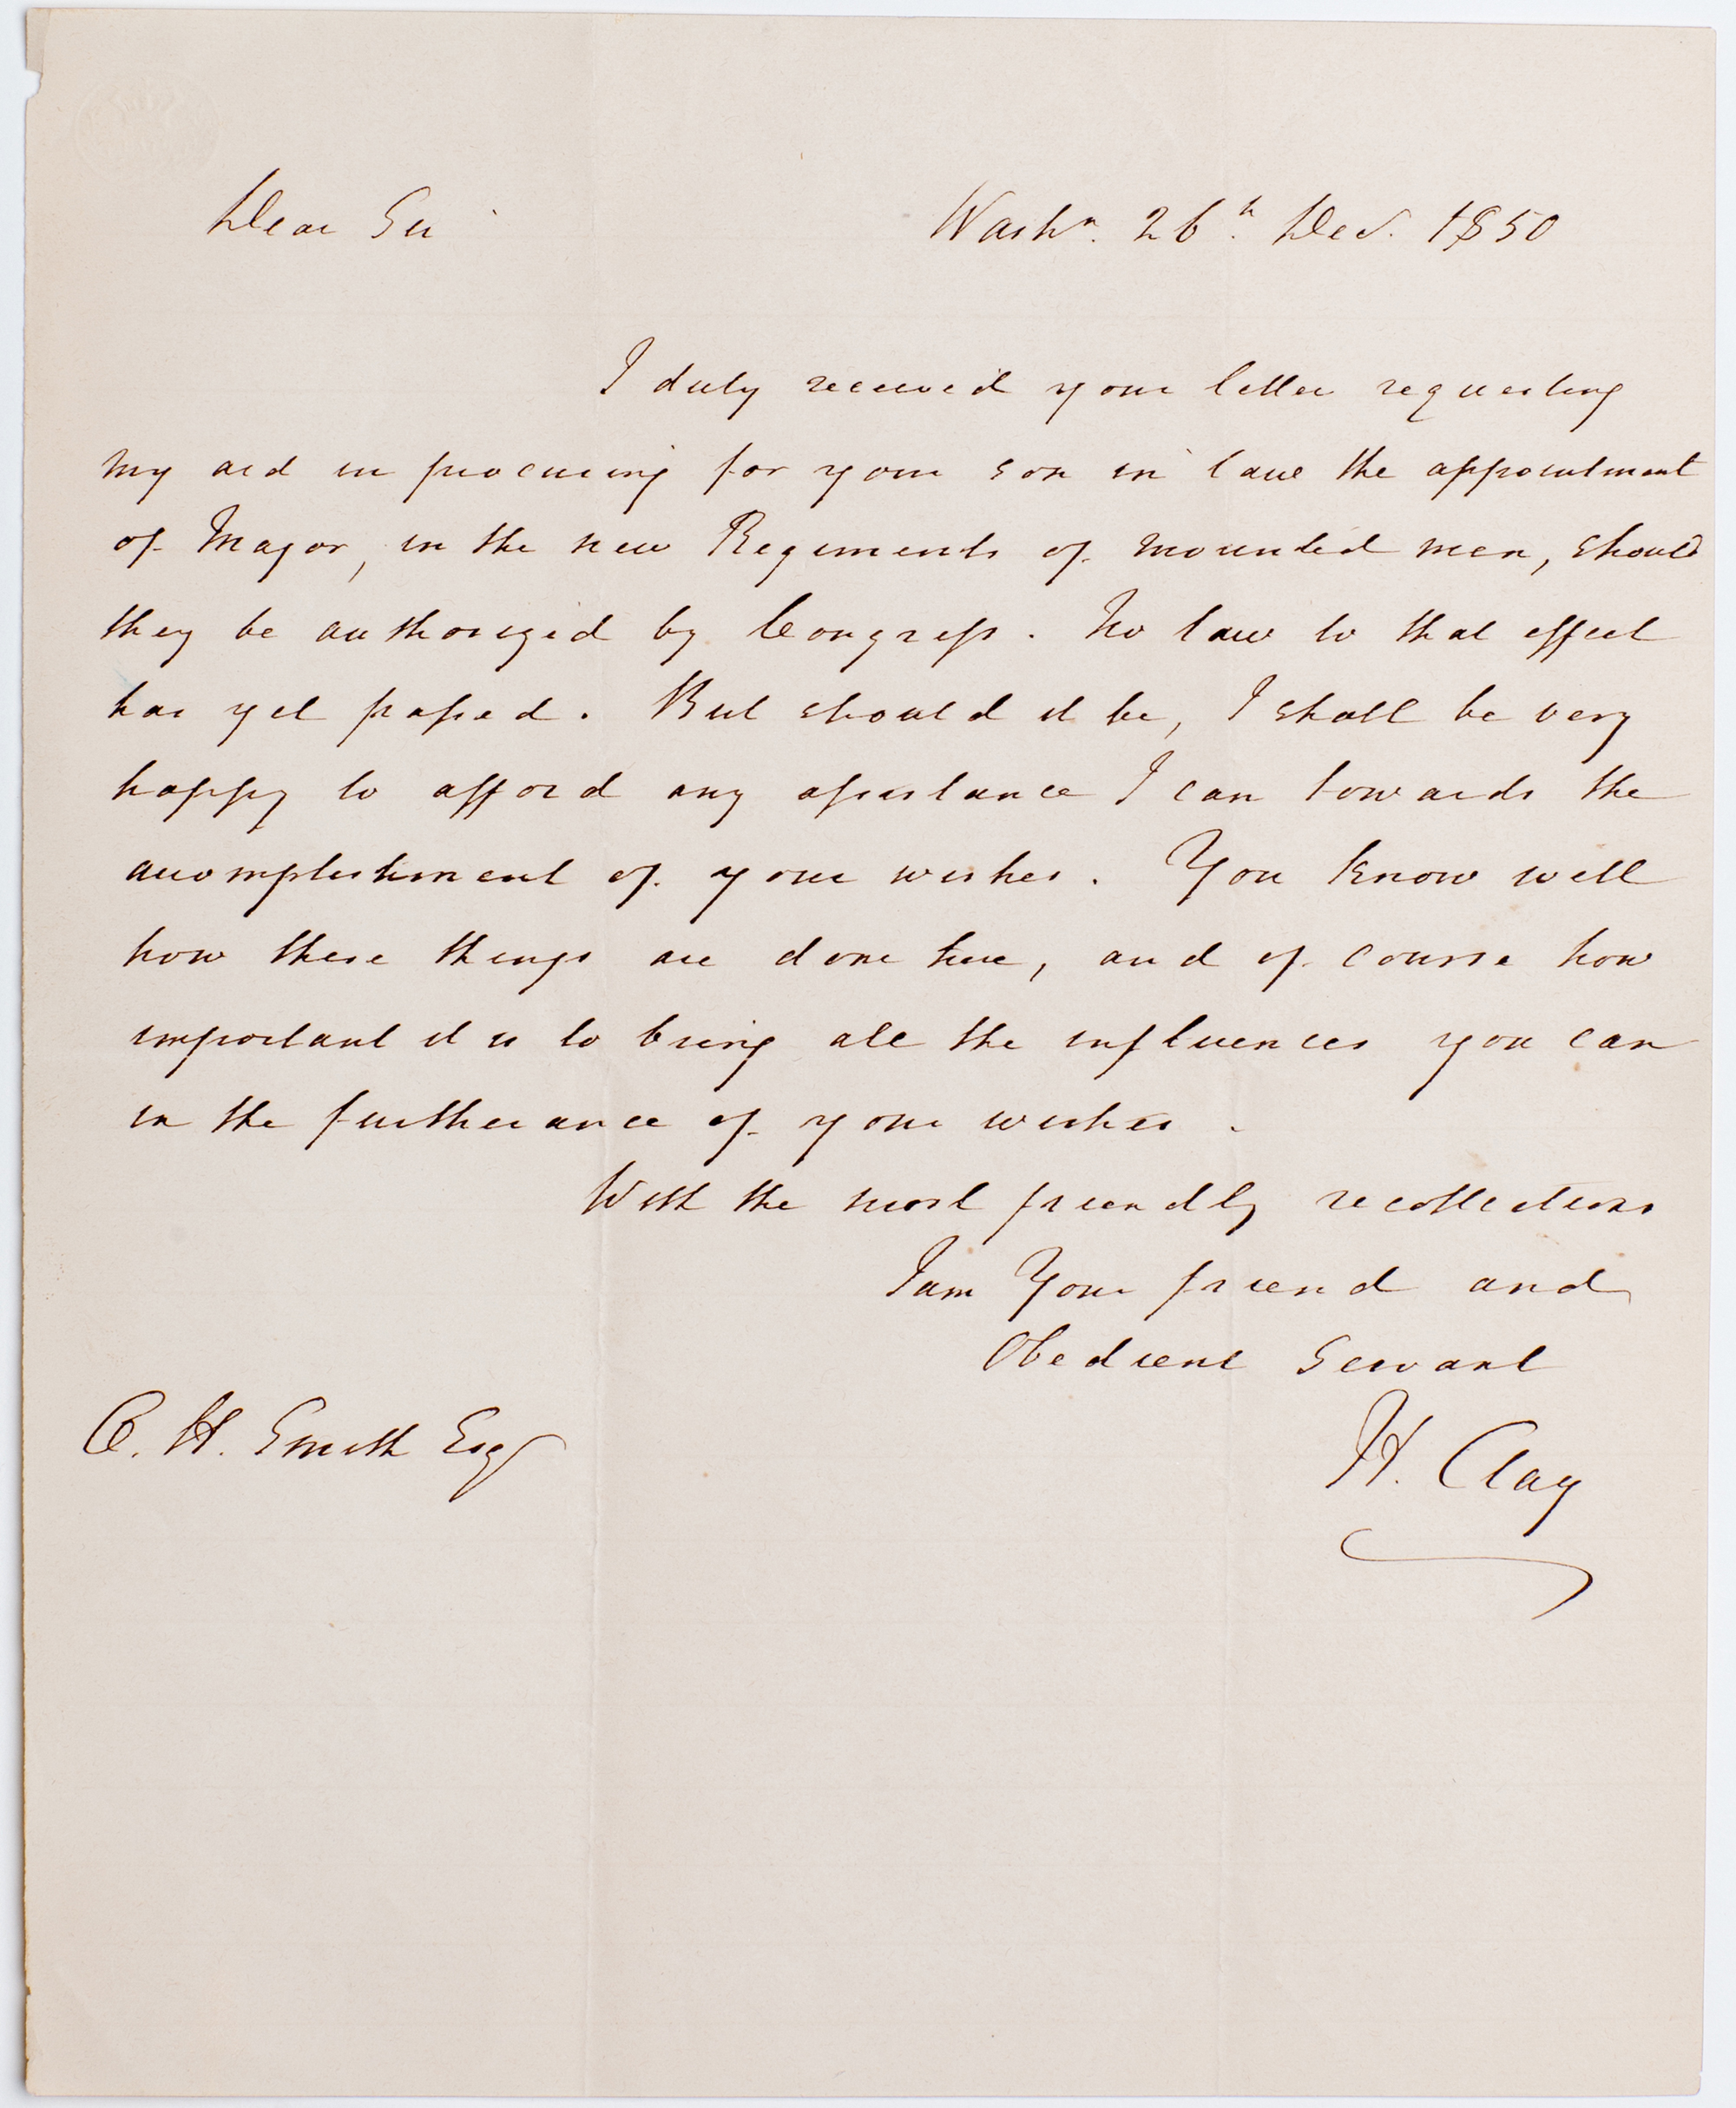 Dear Sir Washn. 26h. Dec. 1850
I duly received your letter requesting
my aid in procuring for your son in law the appointment
of Major, in the new Regiments of mounted men, should
they be authorized by Congress. No law to that effect
has yet passed. But should it be, I shall be very
happy to afford any assistance I can towards the
accomplishment of your wishes. You know well
how these things are done here, and of course how
important it is to bring all the influences you can
in the furtherance of your wishes.
With the most friendly recollections
I am Your friend and
Obedient Servant
H. Clay
H. Smith Esq